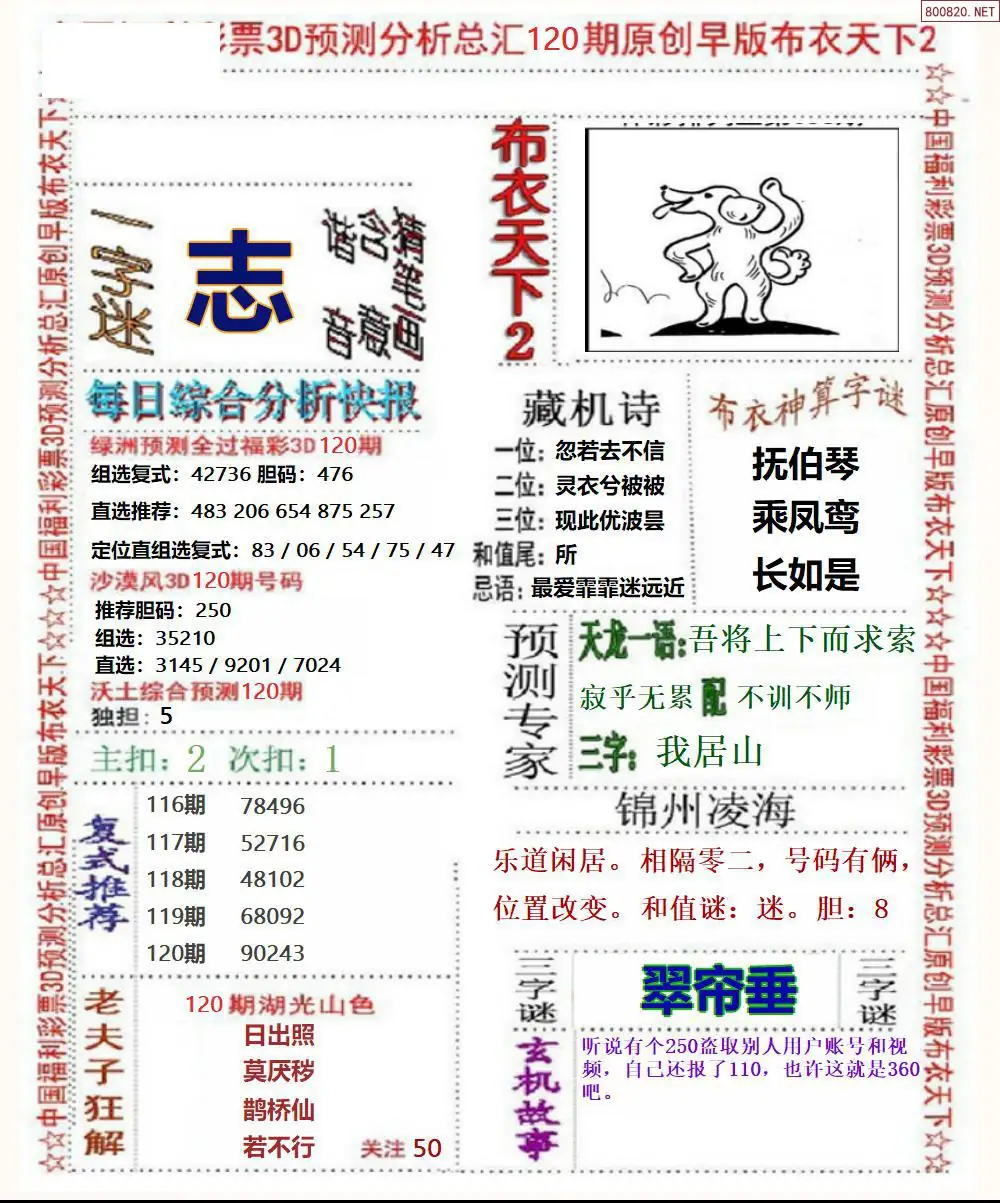 800820.NET
彩票3D预测分析总汇120期原创早版布衣天下2
☆☆中国福利彩票3D预测分析总汇原创早版布衣天下☆☆中国福利彩票3D预测分析总汇原创早版布衣天下☆
一字迷
志
猜笔画
含意
谐音
每日综合分析快报
绿洲预测全过福彩3D120期
组选复式：42736 胆码：476
直选推荐：483 206 654 875 257
定位直组选复式：83 / 06 / 54 / 75 / 47
沙漠风3D120期号码
推荐胆码：250
组选：35210
直选：3145 / 9201 / 7024
沃土综合预测120期
独担：5
主扣：2 次扣：1
复式推荐
116期 78496
117期 52716
118期 48102
119期 68092
120期 90243
老夫子狂解
120期湖光山色
日出照
莫厌秽
鹊桥仙
若不行
关注 50
布衣天下2
藏机诗
一位：忽若去不信
二位：灵衣兮被被
三位：现此优波昙
和值尾：所
忌语：最爱霏霏迷远近
布衣神算字谜
抚伯琴
乘凤鸾
长如是
预测专家
天龙一语:吾将上下而求索
寂乎无累 配 不训不师
三字：我居山
锦州凌海
乐道闲居。相隔零二，号码有俩，
位置改变。和值谜：迷。胆：8
三字谜
翠帘垂
三字谜
玄机故事
听说有个250盗取别人用户账号和视
频，自己还报了110，也许这就是360
吧。
☆☆中国福利彩票3D预测分析总汇原创早版布衣天下☆☆☆中国福利彩票3D预测分析总汇原创早版布衣天下☆☆